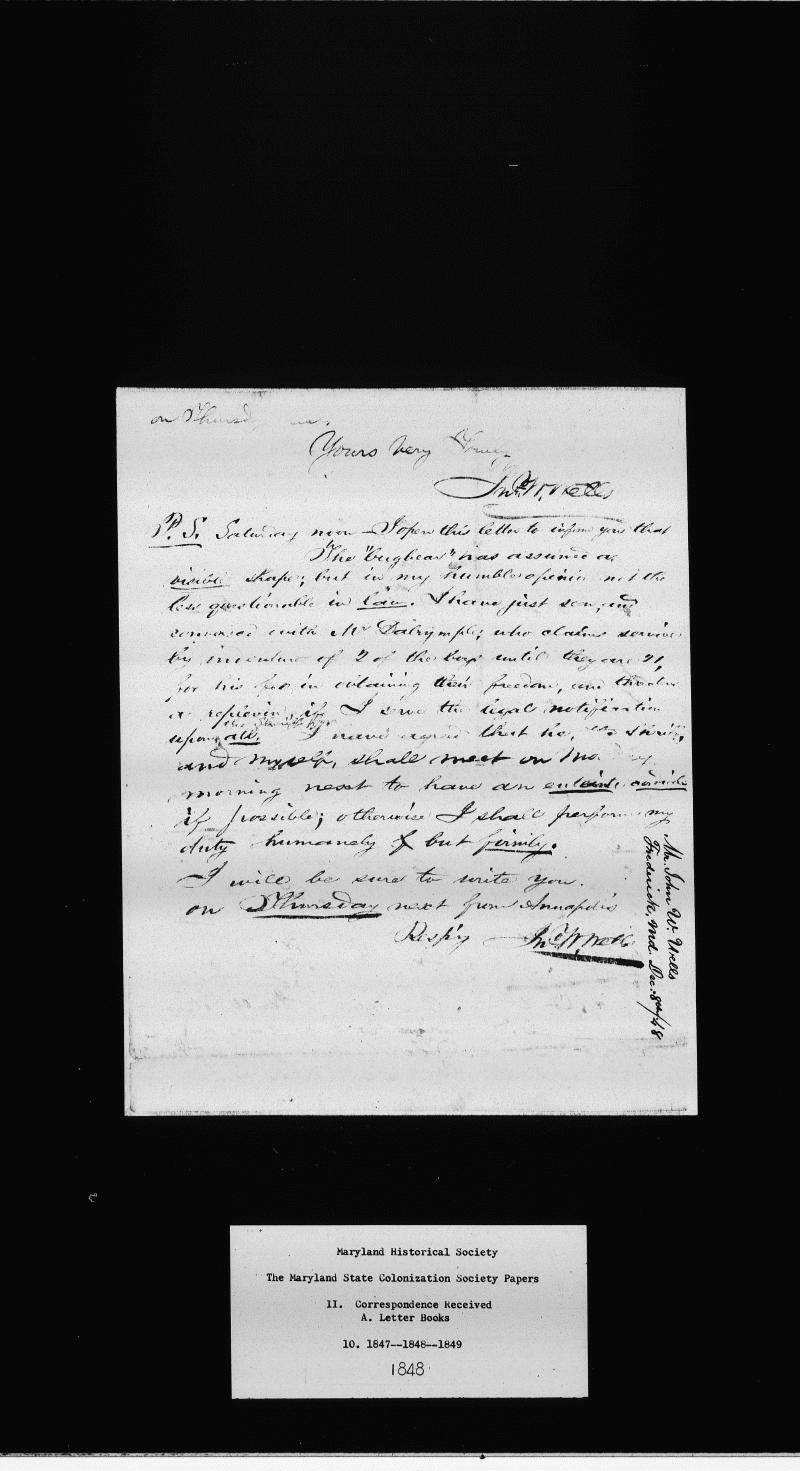 on Thursd
Yours very Truly
Jno. W. Wells
P. S. Saturday noon – I open this letter to inform you that
The "bugbear" has assumed a
visible shape; but in my humble opinion not the
less questionable in law. I have just seen, and
conversed with Mr Dalrymple; who claims service
by indenture of 2 of the boys until they are 21,
for his fee in obtaining their freedom, and threatens
a replevin if I serve the legal notification
upon all. I have agreed that he, the Sheriff,
and myself, shall meet on Monday
morning next to have an
if possible; otherwise I shall perform my
duty humanely & but firmly.
I will be sure to write you.
on Thursday next from Annapolis
Resp'y Jno. W. Wells
Mr. John W. Wells
Frederick, Md. Dec. 8th/48
Maryland Historical Society
The Maryland State Colonization Society Papers
II. Correspondence Received
A. Letter Books
10. 1847--1848--1849
1848